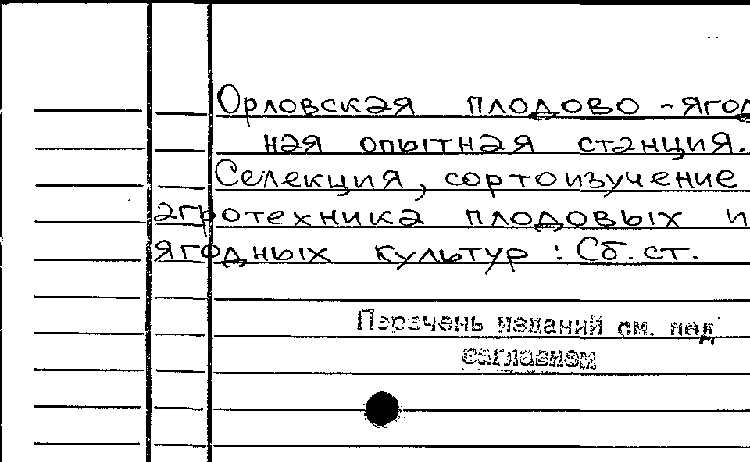 Орловская плодово-ягод
ная опытная станция.
Селекция, сортоизучение
агротехника плодовых и
ягодных культур: Сб. ст.
Перечень изданий см. под
заглавием